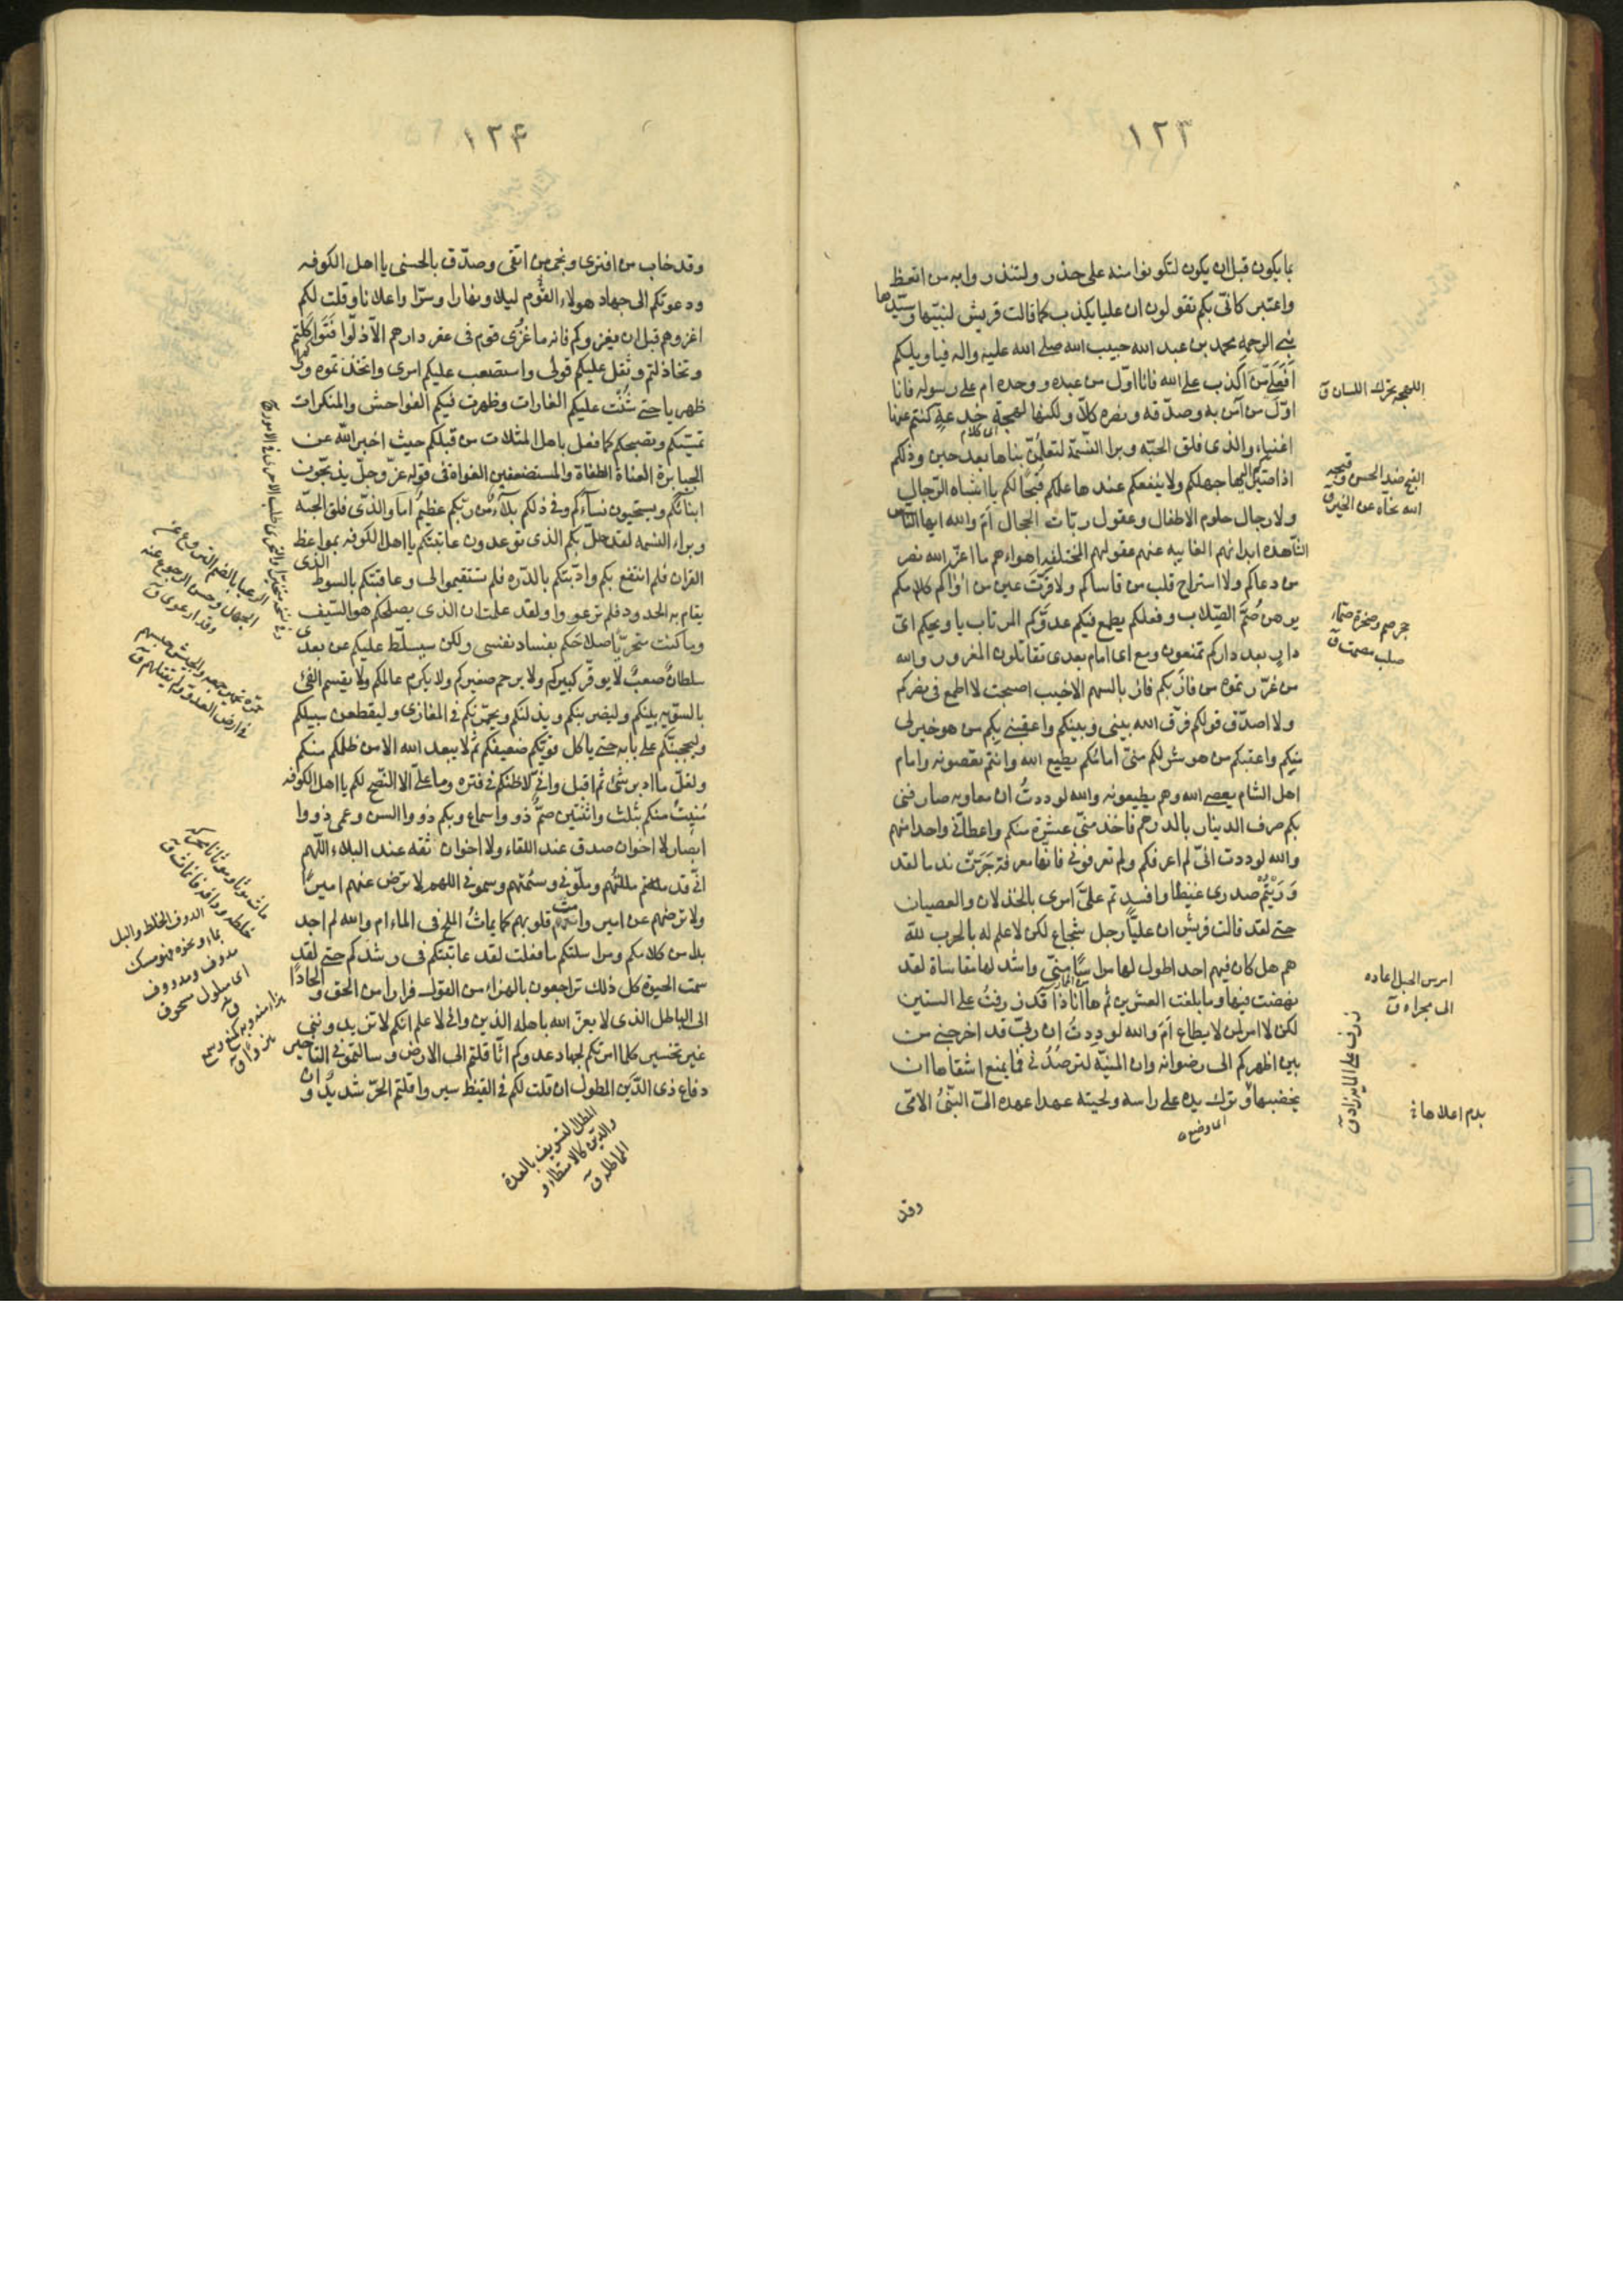 ١٢٣
بما يكون قبل ان يكون لتكونوا منه على حذر ولتنذروا به من اتعظ
واعتبر كانى بكم تقولون ان عليا يكذب كما قالت قريش لنبيّها وسيّدها
نبى الرحمه محمد بن عبد الله حبيب الله صلى الله عليه واله فيا ويلكم
اَفَعَلى مَن اَكذب على الله فانا اوّل من عبده ووحده ام على رسوله فانا
اوّل من آمن به وصدّقه ونصره كلّا ولكنها لهجة خدعة كنتم عنها
اغنياء والذى فلق الحبّه وبرا النّسمة لتعلمنّ نباها بعد حين وذلكم
اذا صيّركم اليها جهلكم ولا ينفعكم عندها علمكم فقُبحًا لكم يا اشباه الرّجال
ولا رجال حلوم الاطفال وعقول ربّات الحجال اَمَ والله ايها النّاس
الشّاهده ابدانهم الغايبه عنهم عقولهم المختلفه اهواءهم ما اعزّ الله نصر
من دعاكم ولا استراح قلب من قاساكم ولا قرّت عين من آواكم كلامكم
يوهن صُمّ الصّلاب وفعلكم يطمع فيكم عدوّكم المرتاب يا ويحكم اىّ
دارٍ بعد داركم تمنعون ومع اى امام بعدى تقاتلون المغرور والله
من غرّرتموه من فاز بكم فاز بالسهم الاخيب اصبحت لا اطمع فى نصركم
ولا اصدّق قولكم فرّق الله بينى وبينكم واعقبنى بكم من هو خير لى
منكم واعقبكم من هو شر لكم منىّ امامكم يطيع الله وانتم تعصونه وامام
اهل الشام يعصى الله وهم يطيعونه والله لوددتُ ان معاويه صارفنى
بكم صرف الدينار بالدرهم فاخذ منىّ عشرة منكم واعطانى واحدا منهم
والله لوددت انىّ لم اعرفكم ولم تعرفونى فانها معرفة جَرَتْ ندما لقد
وَرَيْتُمْ صدرى غيظا وافسدتم علىّ امرى بالخذلان والعصيان
حتى لقد قالت قريش ان عليّاً رجل شجاع لكن لا علم له بالحرب لله
هم هل كان فيهم احد اطول لها مراسًا منىّ واشد لها مقاساة لقد
نهضت فيها وما بلغت العشرين ثم ها انا ذا قد ذرفتُ على الستين
لكن لا امر لمن لا يطاع اَمَ والله لوددتُ ان ربىّ قد اخرجنى من
بين اظهركم الى رضوانه وان المنيّة لترصُدُنى فما يمنع اشقاها ان
يخضبها وترك يده على راسه ولحيته عهدا عهده الىّ النبىُّ الامّى
اى وضع
وقد
اللهجه يحرّك اللسان ق
القبح ضد الحسن وقبحه
الله نحّاه عن الخير ق
حجر صم وصخرة صمّاء
صلب مصمت ق
امرس الحبل اعاده
الى مجراه ق
ذرف على الماية زاد ق
بدم اعلاها
١٢۴
وقد خاب من افترى ونجى من اتقى وصدّق بالحسنى يا اهل الكوفه
ودعوتكم الى جهاد هولاء القوم ليلا ونهارا وسرّا واعلانا وقلت لكم
اغزوهم قبل ان يغزوكم فانه ما غُزِى قوم فى عقر دارهم الّا ذلّوا فتواكلتم
وتخاذلتم وثقل عليكم قولى واستصعب عليكم امرى واتخذتموه وراءكم
ظهريا حتى شُنّت عليكم الغارات وظهرت فيكم الفواحش والمنكرات
تمسّيكم وتصبحكم كما فعل باهل المثلات من قبلكم حيث اخبر الله عن
الجبابرة العتاة الطغاة والمستضعفين الغواة فى قوله عزّ وجلّ يذبّحون
ابنائكم ويستحيون نسآءكم وفى ذلكم بلآءٌ من ربّكم عظيمٌ اَمَا والذى فلق الحبّه
وبراء النسمه لقد حلّ بكم الذى توعدون عاتبتكم يا اهل الكوفه بمواعظ
القران فلم انتفع بكم وادّبتكم بالدّره فلم تستقيموا لى وعاقبتكم بالسوط الذى
يقام به الحدود فلم ترعووا ولقد علمت ان الذى يصلحكم هو السّيف
وما كنت متحريّا صلاحكم بفساد نفسى ولكن سيسلّط عليكم من بعدى
سلطانٌ صعبٌ لا يوقّر كبيركم ولا يرحم صغيركم ولا يكرم عالمكم ولا يقسم الفئ
بالسوّيه بينكم وليضربنكم ويذلنكم ويجمّرنكم فى المغازى وليقطعن سبيلكم
وليحجبنّكم على بابه حتى ياكل قويّكم ضعيفكم ثم لا يبعد الله الا من ظلمكم منكم
ولقلّ ما ادبر شئ ثم اقبل وانى لاظنكم فى فتره وما علىّ الا النّصح لكم يا اهل الكوفه
مُنيتُ منكم بثلث واثنتين صمٌّ ذوو اسماع وبكم ذووا السن وعمى ذووا
ابصار لا اخوان صدق عند اللقاء ولا اخوان ثقه عند البلاء اللّهم
انّى قد مللتهم وملّونى وسئمتهم وسمونى اللهم لا ترض عنهم اميرًا
ولا ترضهم عن امير وامث قلوبهم كما يماثُ الملح فى الماء ام والله لم اجد
بدا من كلامكم ومراسلتكم ما فعلت لقد عاتبتكم فى رشدكم حتى لقد
سمت الحيوة كل ذلك تراجعون بالهزاء من القول فرارا من الحق والحادًا
الى الباطل الذى لا يعزّ الله باهله الذين وانى لا علم انكم لا تزيدوننى
غير تخسير كلما امرتكم لجهاد عدوكم اثّاقلتم الى الارض وسالتمونى التاخير
دفاع ذى الدَّين المطول ان قلت لكم فى القيظ سيروا قلتم الحرّ شديدٌ وان
المطل التسويف بالعدة
والدّين كالامتطال و
المماطله ق
الرعيا بالضم النزوع عن
الجهل وحسن الرجوع عنه
وقد ارعوى ق
فى ارض العدو ولم يقفلهم ق
الدوف الخلط والبل
بماء ونحوه فهو مسك
مدوف ومدووف
اى مبلول مسحوق